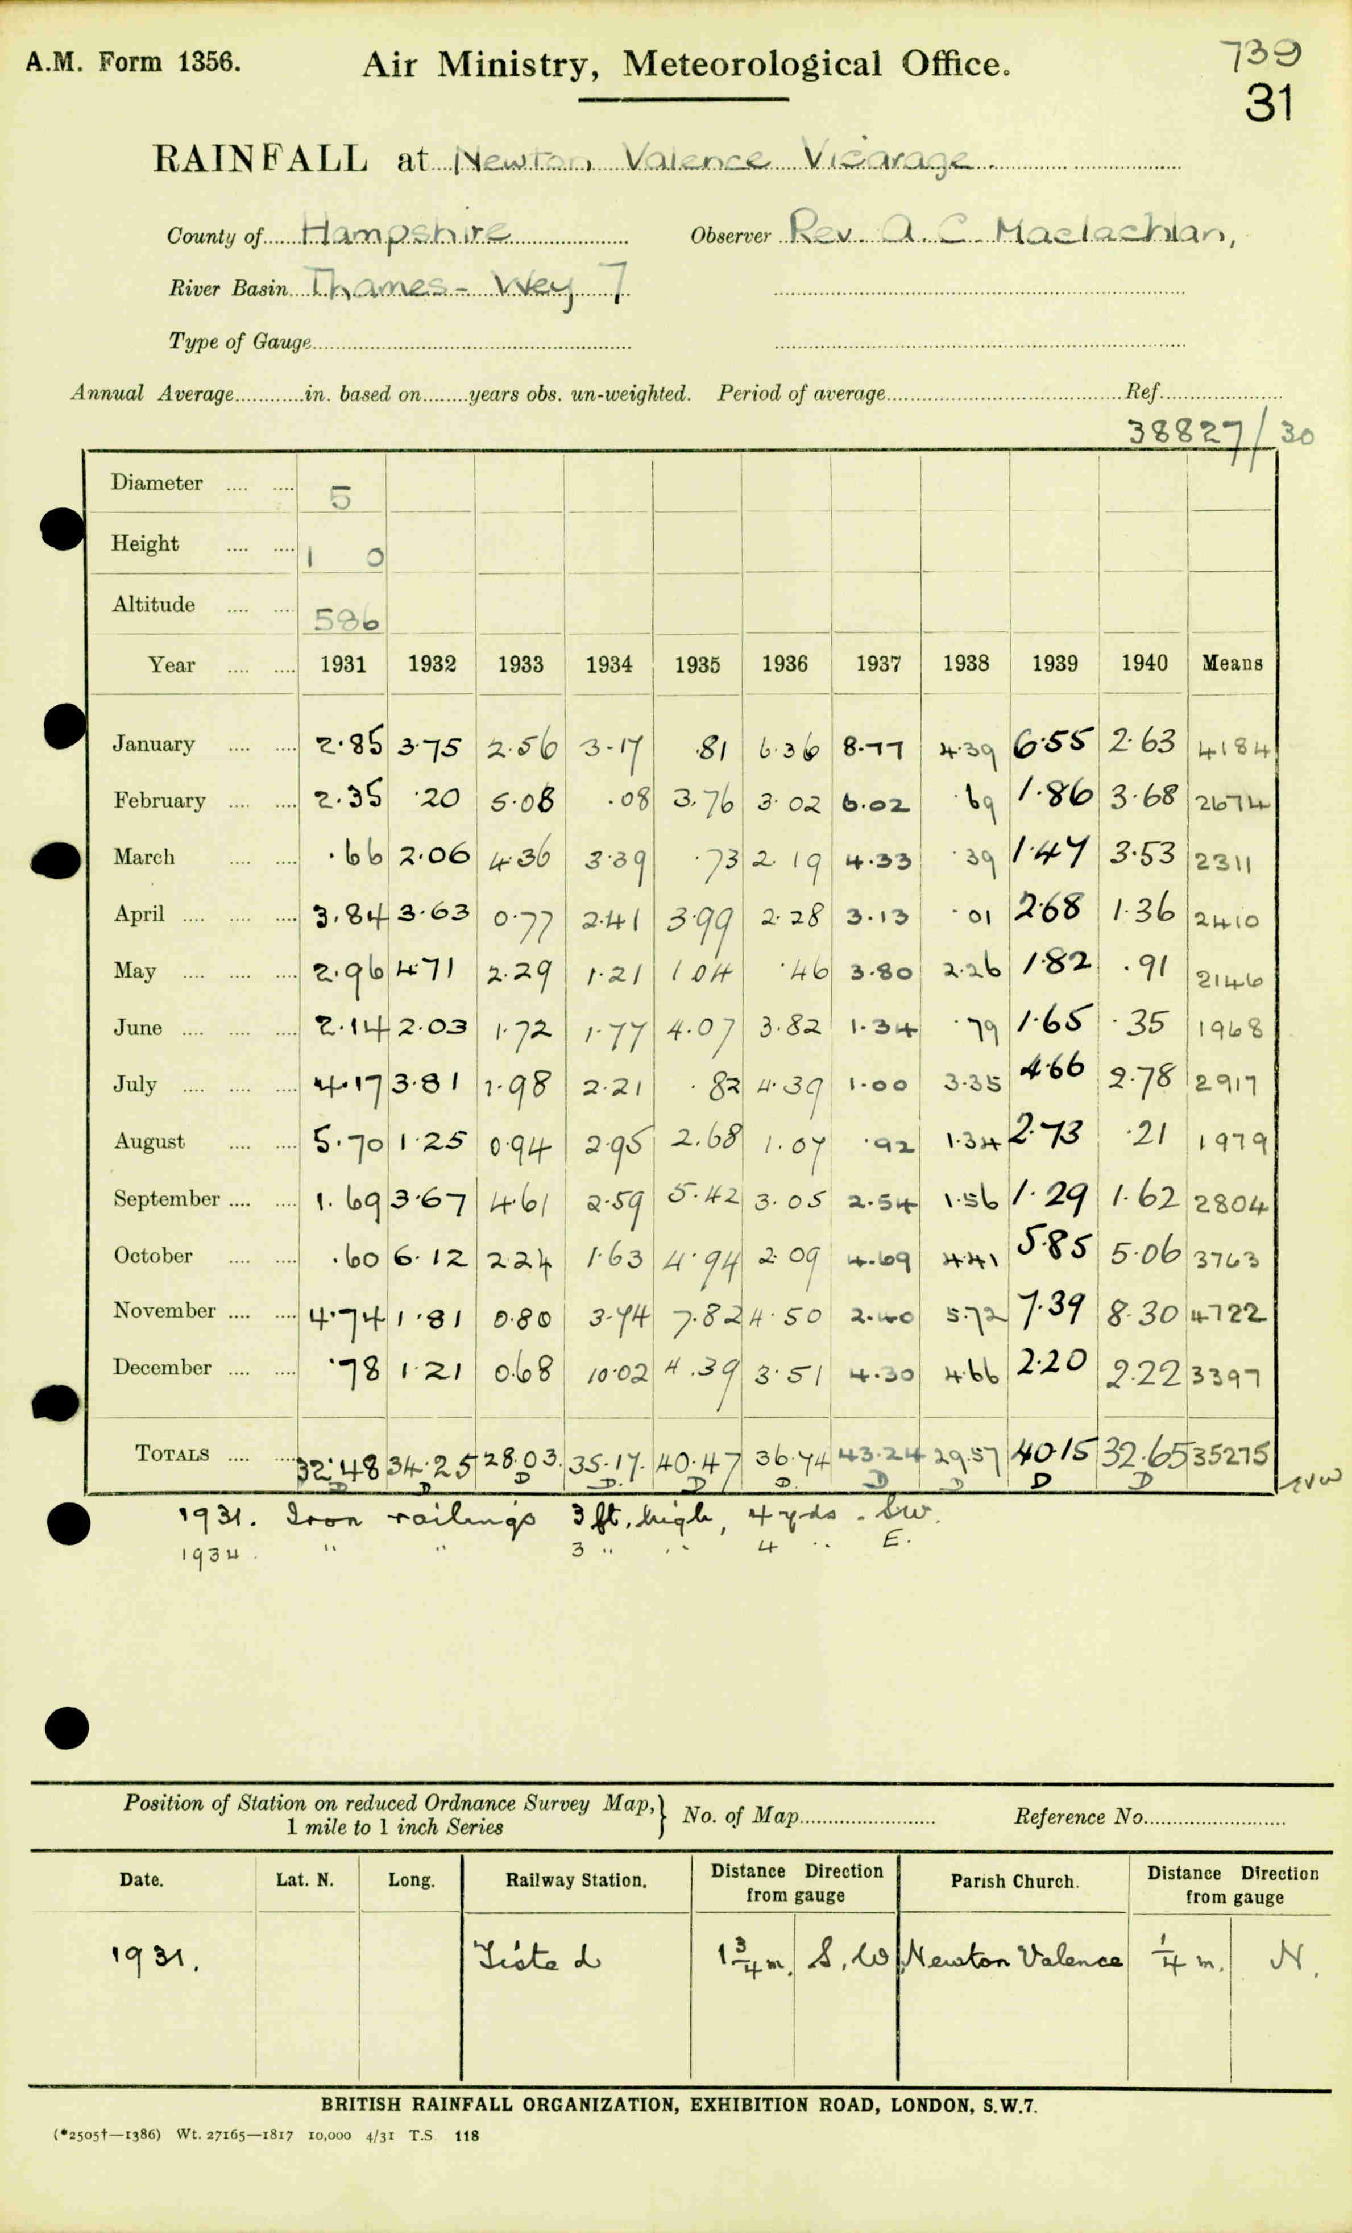 A.M. Form 1356.
Air Ministry, Meteorological Office.
739
31
RAINFALL at Newton Valence Vicarage.
County of Hampshire Observer Rev. A. C. Maclachlan,
River Basin Thames - Wey 7
Type of Gauge
Annual Average in. based on years obs. un-weighted. Period of average Ref.
38827/30
Diameter 5
Height 1 0
Altitude 586
Year 1931 1932 1933 1934 1935 1936 1937 1938 1939 1940 Means
January 2.85 3.75 2.56 3.17 .81 6.36 8.77 4.39 6.55 2.63 4184
February 2.35 .20 5.08 .08 3.76 3.02 6.02 .69 1.86 3.68 2674
March .66 2.06 4.36 3.39 .73 2.19 4.33 .39 1.47 3.53 2311
April 3.84 3.63 0.77 2.41 3.99 2.28 3.13 .01 2.68 1.36 2410
May 2.96 4.71 2.29 1.21 1.04 .46 3.80 2.26 1.82 .91 2146
June 2.14 2.03 1.72 1.77 4.07 3.82 1.34 .79 1.65 .35 1968
July 4.17 3.81 1.98 2.21 .82 4.39 1.00 3.35 4.66 2.78 2917
August 5.70 1.25 0.94 2.95 2.68 1.07 .92 1.34 2.73 .21 1979
September 1.69 3.67 4.61 2.59 5.42 3.05 2.54 1.56 1.29 1.62 2804
October .60 6.12 2.24 1.63 4.94 2.09 4.69 4.41 5.85 5.06 3763
November 4.74 1.81 0.80 3.74 7.82 4.50 2.40 5.72 7.39 8.30 4722
December .78 1.21 0.68 10.02 4.39 3.51 4.30 4.66 2.20 2.22 3397
TOTALS 32.48 34.25 28.03 35.17 40.47 36.74 43.24 29.57 40.15 32.65 35275
D D D D D D D D D D
1931. Iron railings 3 ft. high, 4 yds. SW.
1934. " " 3 " " 4 " E.
Position of Station on reduced Ordnance Survey Map, } No. of Map Reference No.
1 mile to 1 inch Series
Date. Lat. N. Long. Railway Station. Distance Direction from gauge Parish Church. Distance Direction from gauge
1931. Tisted 1 3/4 m. S.W. Newton Valence 1/4 m. N.
BRITISH RAINFALL ORGANIZATION, EXHIBITION ROAD, LONDON, S.W.7.
(*2505†—1386) Wt. 27165—1817 10,000 4/31 T.S. 118